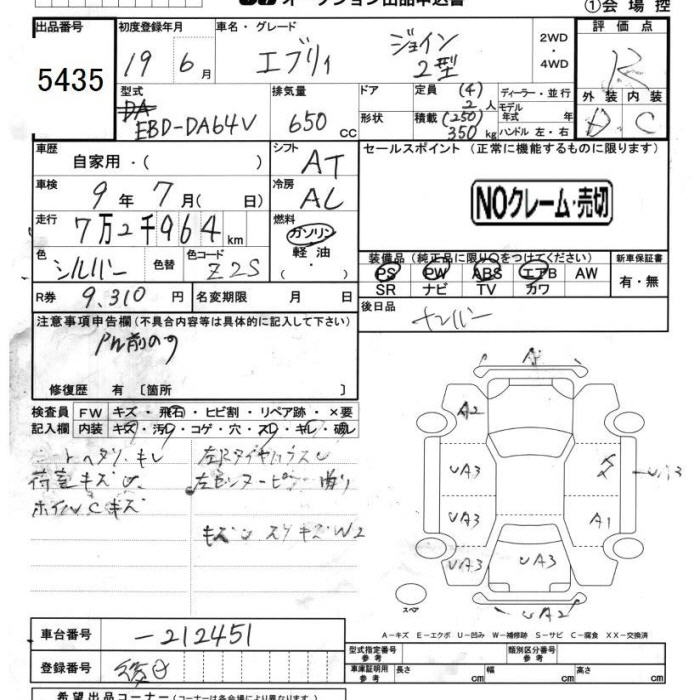 オークション出品申込書
①会場控
出品番号
5435
初度登録年月
19 6 月
車名・グレード
エブリィ ジョイン 2型
2WD ・ 4WD
評価点
R
外装 内装
D C
型式
EBD-DA64V
排気量
650 cc
ドア
形状
定員 (4) 2 人
積載 (250) 350 kg
ディーラー・並行
モデル年式 年
ハンドル 左・右
車歴
自家用・( )
シフト
AT
車検
9 年 7 月 ( 日)
冷房
AC
走行
7万2千964 km
燃料
ガソリン
軽油
・( )
色
シルバー
色替
色コード
Z2S
R券
9,310 円
名変期限 月 日
セールスポイント (正常に機能するものに限ります)
NOクレーム・売切
装備品 (純正品に限り○をつけてください)
PS PW ABS エアB AW
SR ナビ TV カワ
新車保証書
有・無
後日品
ナンバー
注意事項申告欄 (不具合内容等は具体的に記入して下さい)
修復歴 有 〔箇所
検査員記入欄
FW キズ・飛石・ヒビ割・リペア跡・×要
内装 キズ・汚レ・コゲ・穴・スレ・キレ・破レ
シートヘタリ・キレ
荷室キズ U
ホイルCキズ
キズU スリキズ W2
A2
UA3 UA3
UA3 A1
UA3 UA3
UA2
スペア
A-キズ E-エクボ U-凹み W-補修跡 S-サビ C-腐食 XX-交換済
車台番号
-212451
登録番号
後日
型式指定番号 参考
類別区分番号 参考
車庫証明用 参考
長さ cm 幅 cm 高さ cm
希望出品コーナー (コーナーは各会場により異なります)